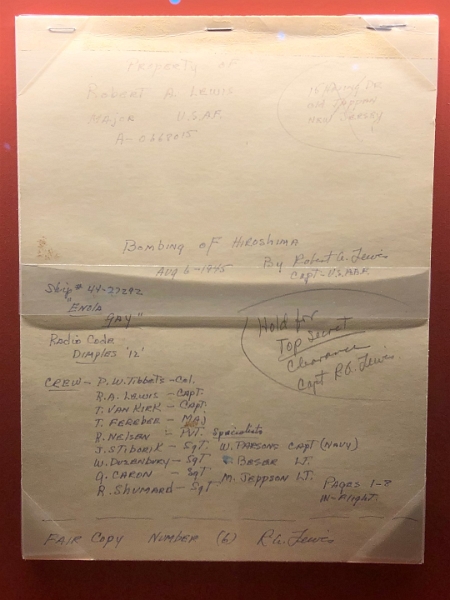 Property of
Robert A. Lewis
Major U.S.A.F.
Old Tappan
New Jersey
Bombing of Hiroshima
Aug 6-1945 By Robert A. Lewis
Capt-U.S.A.A.F.
Ship # 44-27292
"Enola
Gay"
Radio Code
Dimples '12'
Hold for
Top Secret
Clearance
Capt R.A. Lewis
CREW - P.W. Tibbets - Col.
R.A. Lewis - Capt.
T. Van Kirk - Capt.
T. Fereber - Maj
R. Nelson - Pvt. Specialists
J. Stiborik - Sgt W. Parsons Capt (Navy)
W. Duzenbury - Sgt Beser LT.
G. Caron - Sgt M. Jeppson LT.
R. Shumard - Sgt Pages 1-8
In-Flight.
Fair Copy Number (6) R.A. Lewis